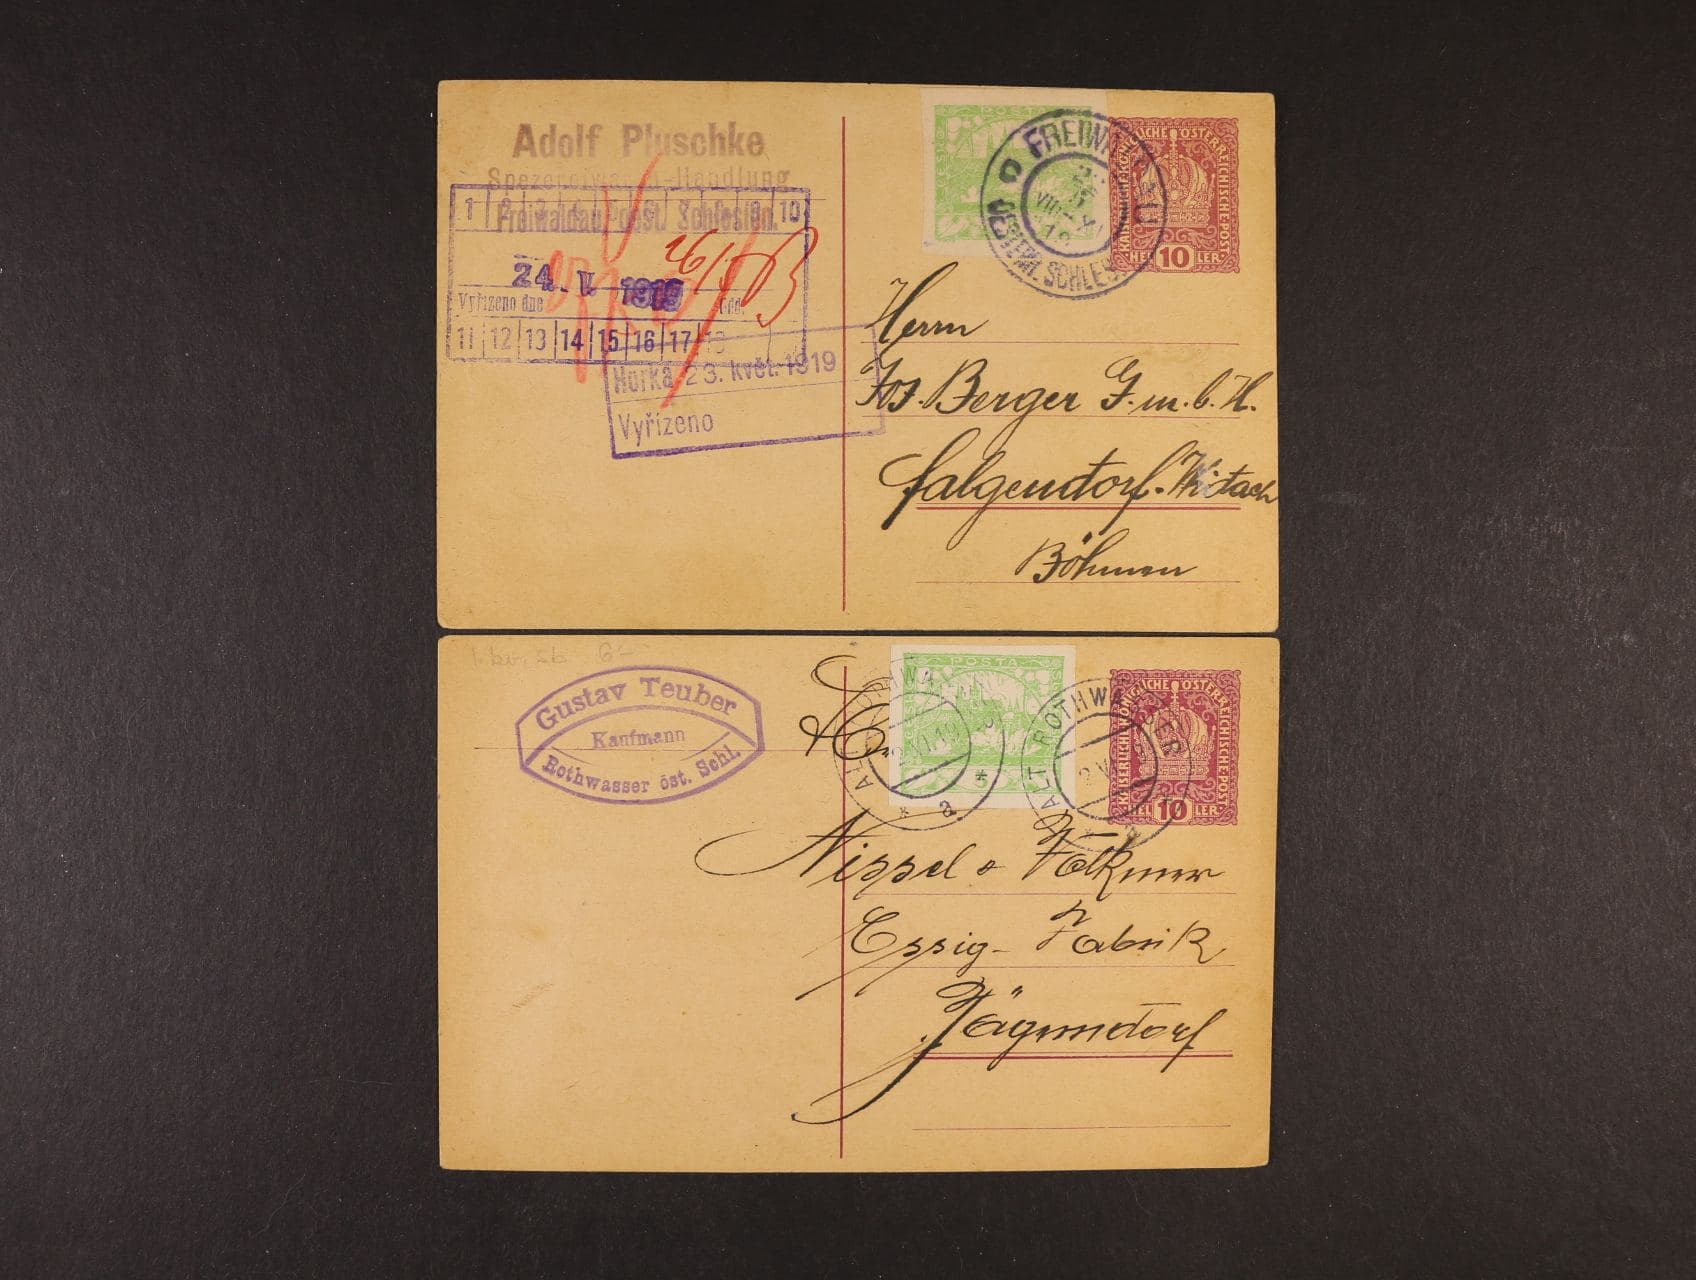 Adolf Pluschke
Spezereiwaren-Handlung
Freiwaldau, öst. Schlesien.
1 2 3 4 9 10
24. V. 1919
26/
Vyřízeno dne
11 12 13 14 15 16 17 18
Horka 23. květ. 1919
Vyřízeno
POSTA
ČESKO
FREIWALDAU
OESTERR. SCHLES.
KAISERLICHE KÖNIGLICHE ÖSTERREICHISCHE POST
10
HELLER
Herrn
Jos. Berger G.m.b.H.
Falgendorf
Böhmen
6-
Gustav Teuber
Kaufmann
Rothwasser öst. Schl.
POSTA
5
ALT ROTHWASSER
2 VI. 19
a
ALT ROTHWASSER
2 VI
KAISERLICHE KÖNIGLICHE ÖSTERREICHISCHE POST
10
HELLER
Nippel & Folkmer
Essig-Fabrik
Jägerndorf